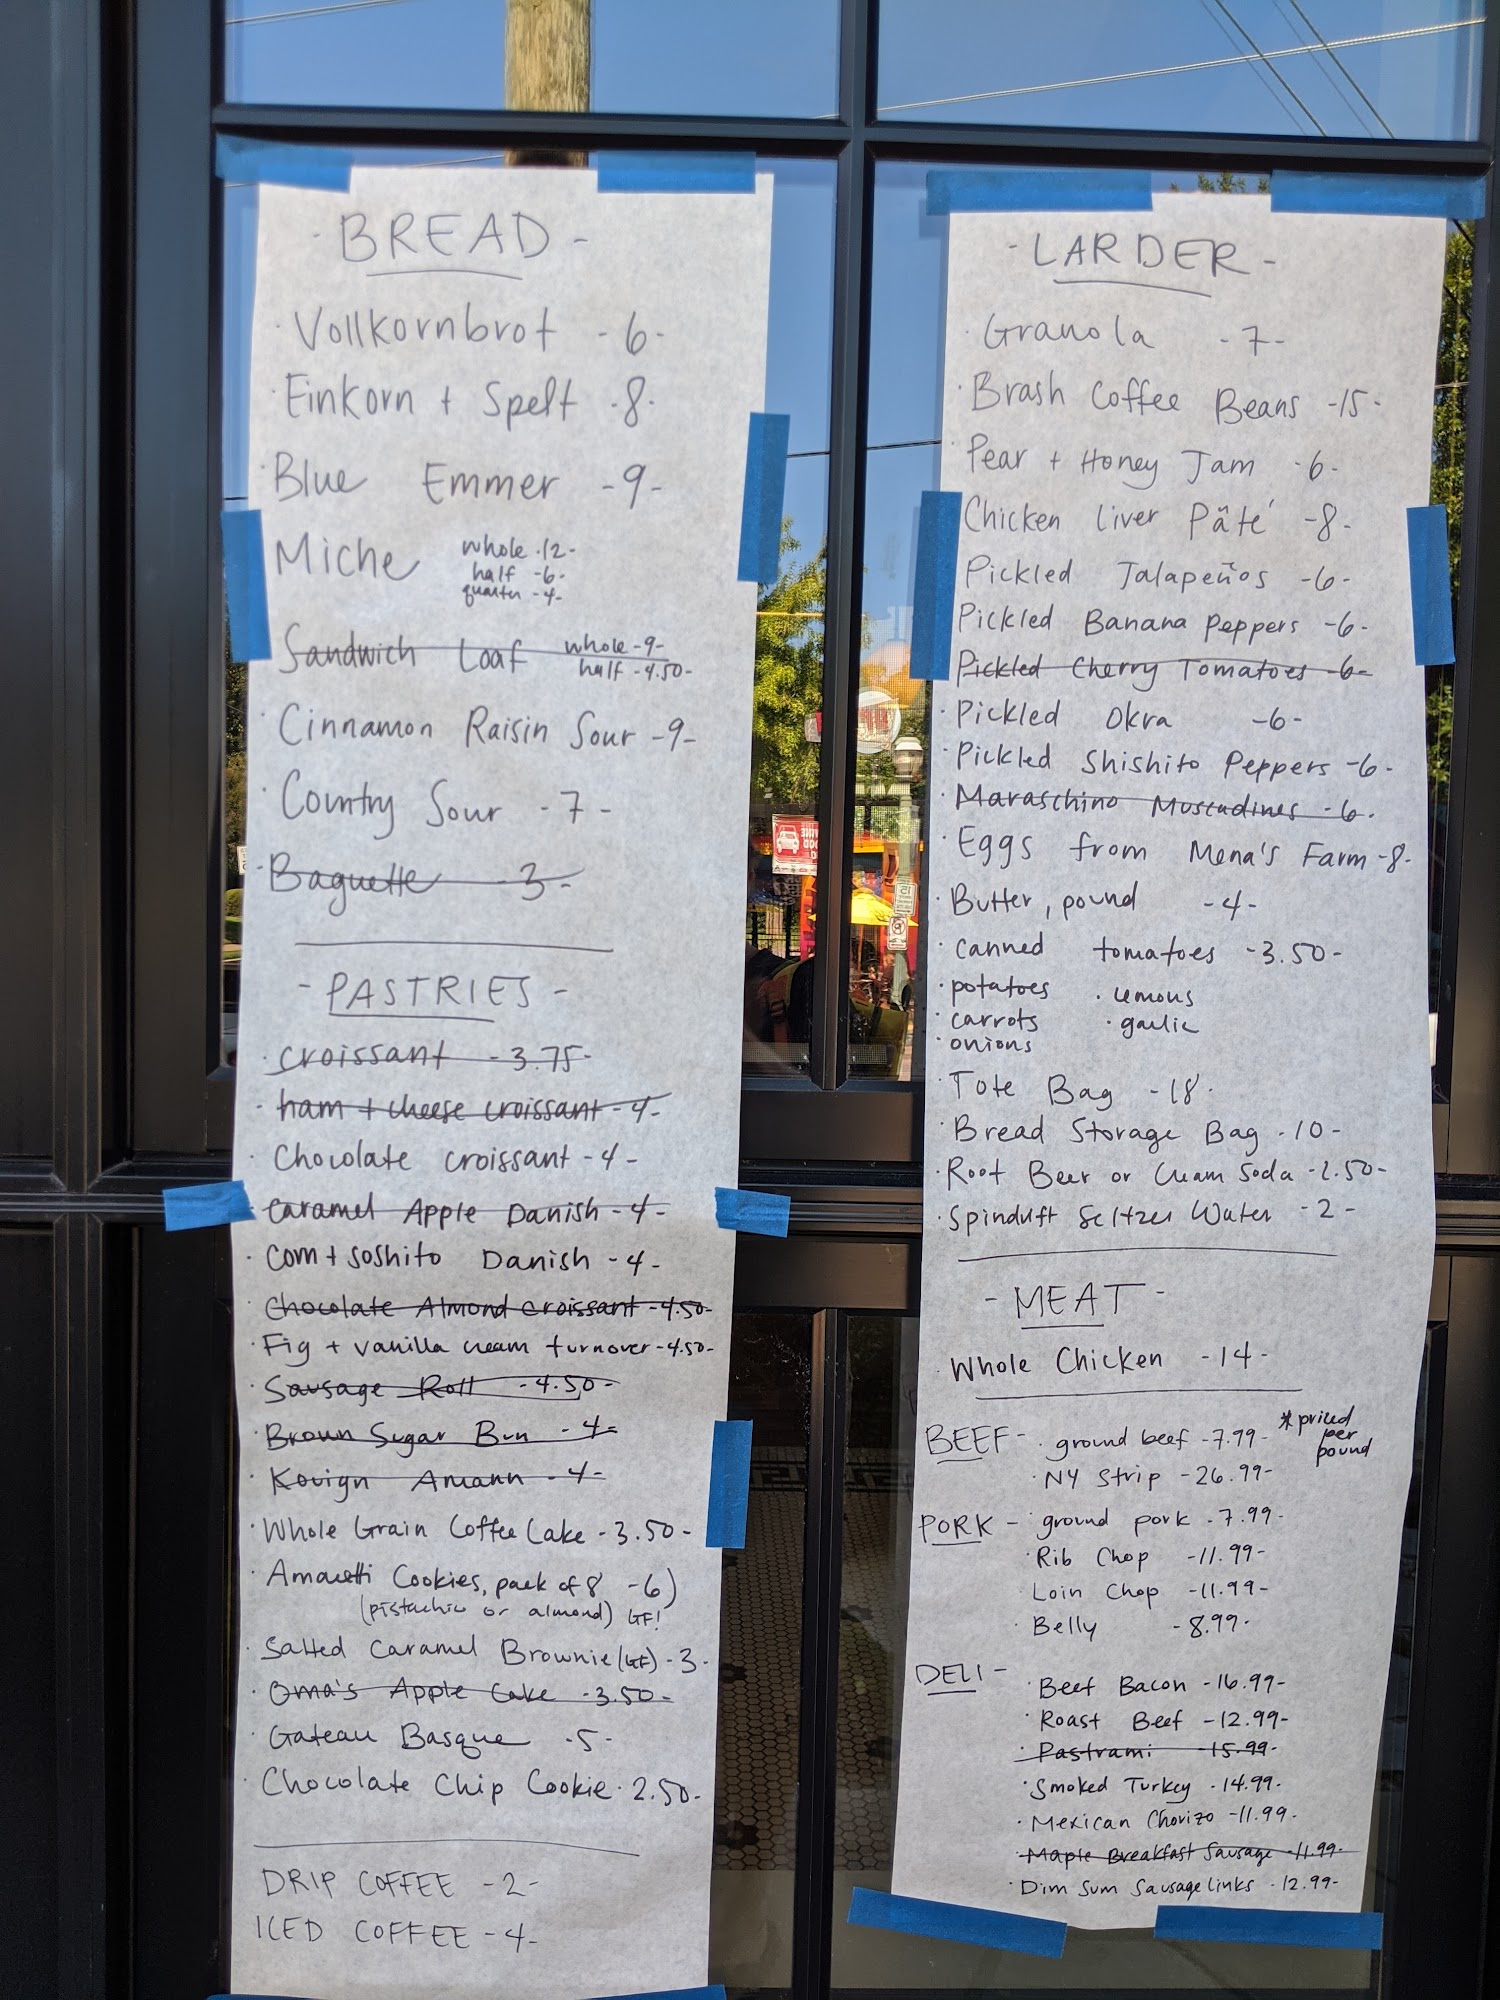 - BREAD -
· Vollkornbrot - 6 -
· Einkorn + Spelt - 8 -
· Blue Emmer - 9 -
· Miche whole - 12 -
half - 6 -
quarter - 4 -
· Sandwich Loaf whole - 9 -
half - 4.50 -
· Cinnamon Raisin Sour - 9 -
· Country Sour - 7 -
· Baguette - 3 -
- PASTRIES -
· croissant - 3.75 -
· ham + cheese croissant - 4 -
· Chocolate croissant - 4 -
· Caramel Apple Danish - 4 -
· Corn + soshito Danish - 4 -
· Chocolate Almond croissant - 4.50 -
· Fig + vanilla cream turnover - 4.50 -
· Sausage Roll - 4.50 -
· Brown Sugar Bun - 4 -
· Kouign Amann - 4 -
· Whole Grain Coffee Cake - 3.50 -
· Amaretti Cookies, pack of 8 - 6 )
(pistachio or almond) GF!
· Salted Caramel Brownie (GF) - 3 -
· Oma's Apple Cake - 3.50 -
· Gateau Basque - 5 -
· Chocolate Chip Cookie - 2.50 -
DRIP COFFEE - 2 -
ICED COFFEE - 4 -
- LARDER -
· Granola - 7 -
· Brash Coffee Beans - 15 -
· Pear + Honey Jam - 6 -
· Chicken Liver Pâté - 8 -
· Pickled Jalapeños - 6 -
· Pickled Banana Peppers - 6 -
· Pickled Cherry Tomatoes - 6 -
· Pickled Okra - 6 -
· Pickled Shishito Peppers - 6 -
· Maraschino Muscadines - 6 -
· Eggs from Mena's Farm - 8 -
· Butter, pound - 4 -
· canned tomatoes - 3.50 -
· potatoes · lemons
· carrots · garlic
· onions
· Tote Bag - 18 -
· Bread Storage Bag - 10 -
· Root Beer or Cream Soda - 2.50 -
· Spindrift Seltzer Water - 2 -
- MEAT -
· Whole Chicken - 14 -
BEEF - · ground beef - 7.99 - * priced per pound
· NY Strip - 26.99 -
PORK - · ground pork - 7.99 -
· Rib Chop - 11.99 -
· Loin Chop - 11.99 -
· Belly - 8.99 -
DELI - · Beef Bacon - 16.99 -
· Roast Beef - 12.99 -
· Pastrami - 15.99 -
· Smoked Turkey - 14.99 -
· Mexican Chorizo - 11.99 -
· Maple Breakfast Sausage - 11.99 -
· Dim Sum Sausage Links - 12.99 -